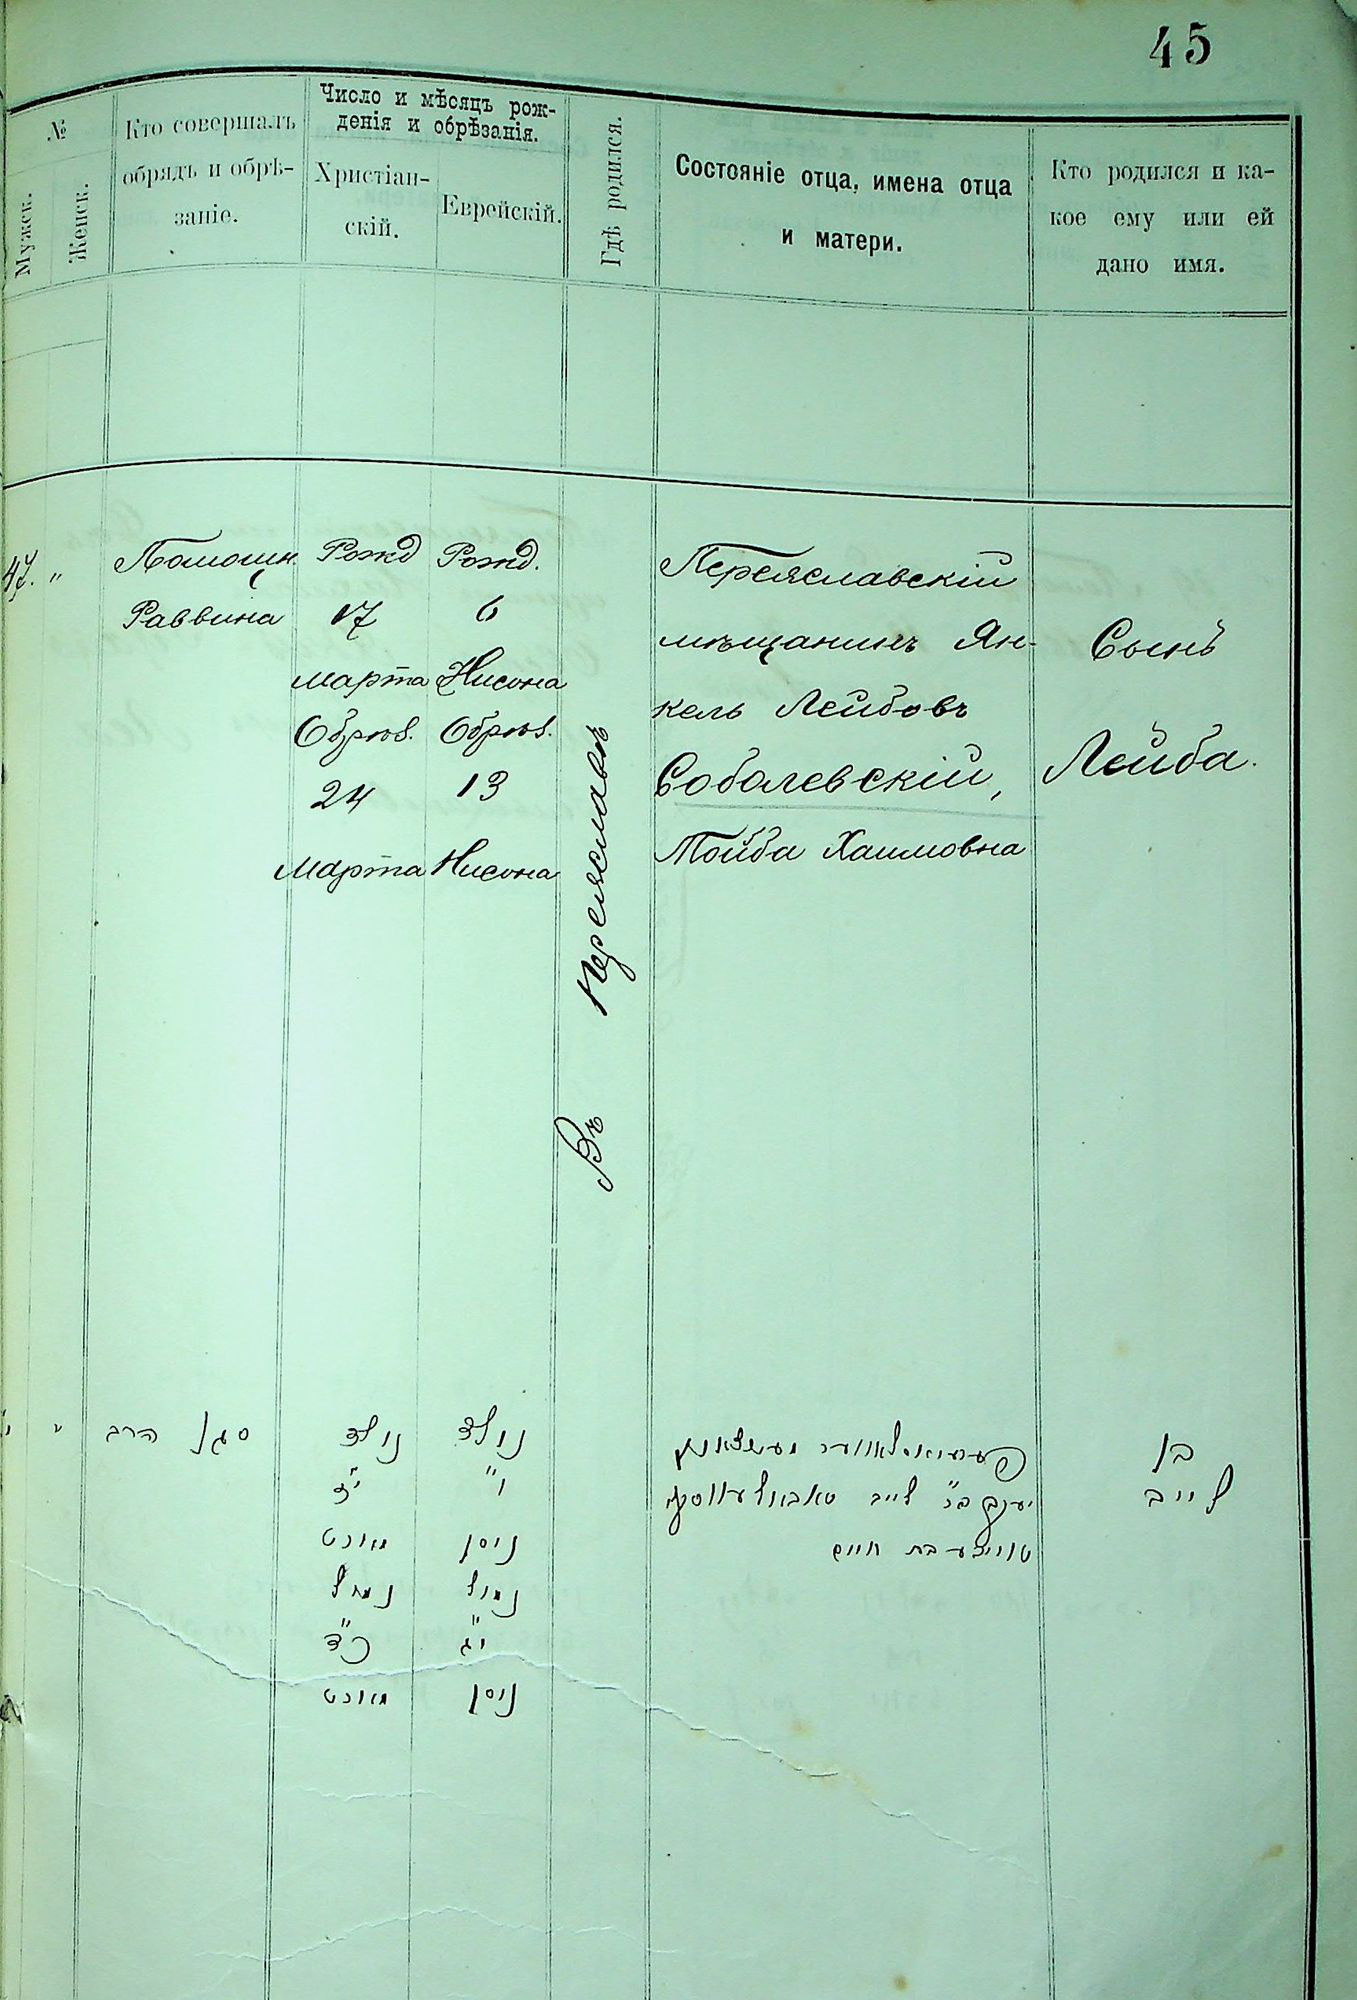 45
№
Мужск.
Женск.
Кто совершалъ
обрядъ и обрѣ-
заніе.
Число и мѣсяцъ рож-
денія и обрѣзанія.
Христіан-
скій.
Еврейскій.
Гдѣ родился.
Состояніе отца, имена отца
и матери.
Кто родился и ка-
кое ему или ей
дано имя.
47. "
Помощн.
Раввина
Рожд
17
марта
Обрѣз.
24
Марта
Рожд.
6
Нисона
Обрѣз.
13
Нисона
Въ Переяславѣ
Переяславскій
мѣщанинъ Ян-
кель Лейбовъ
Соболевскій,
Тойба Хаимовна
Сынъ
Лейба.
סגן הרב
נולד
י"ז
מארט
נמול
כ"ד
מארט
נולד
ו"
ניסן
נמול
י"ג
ניסן
יעקב בר' לייב סאבאלעווסקי
טויבע בת חיים
בן
לייב